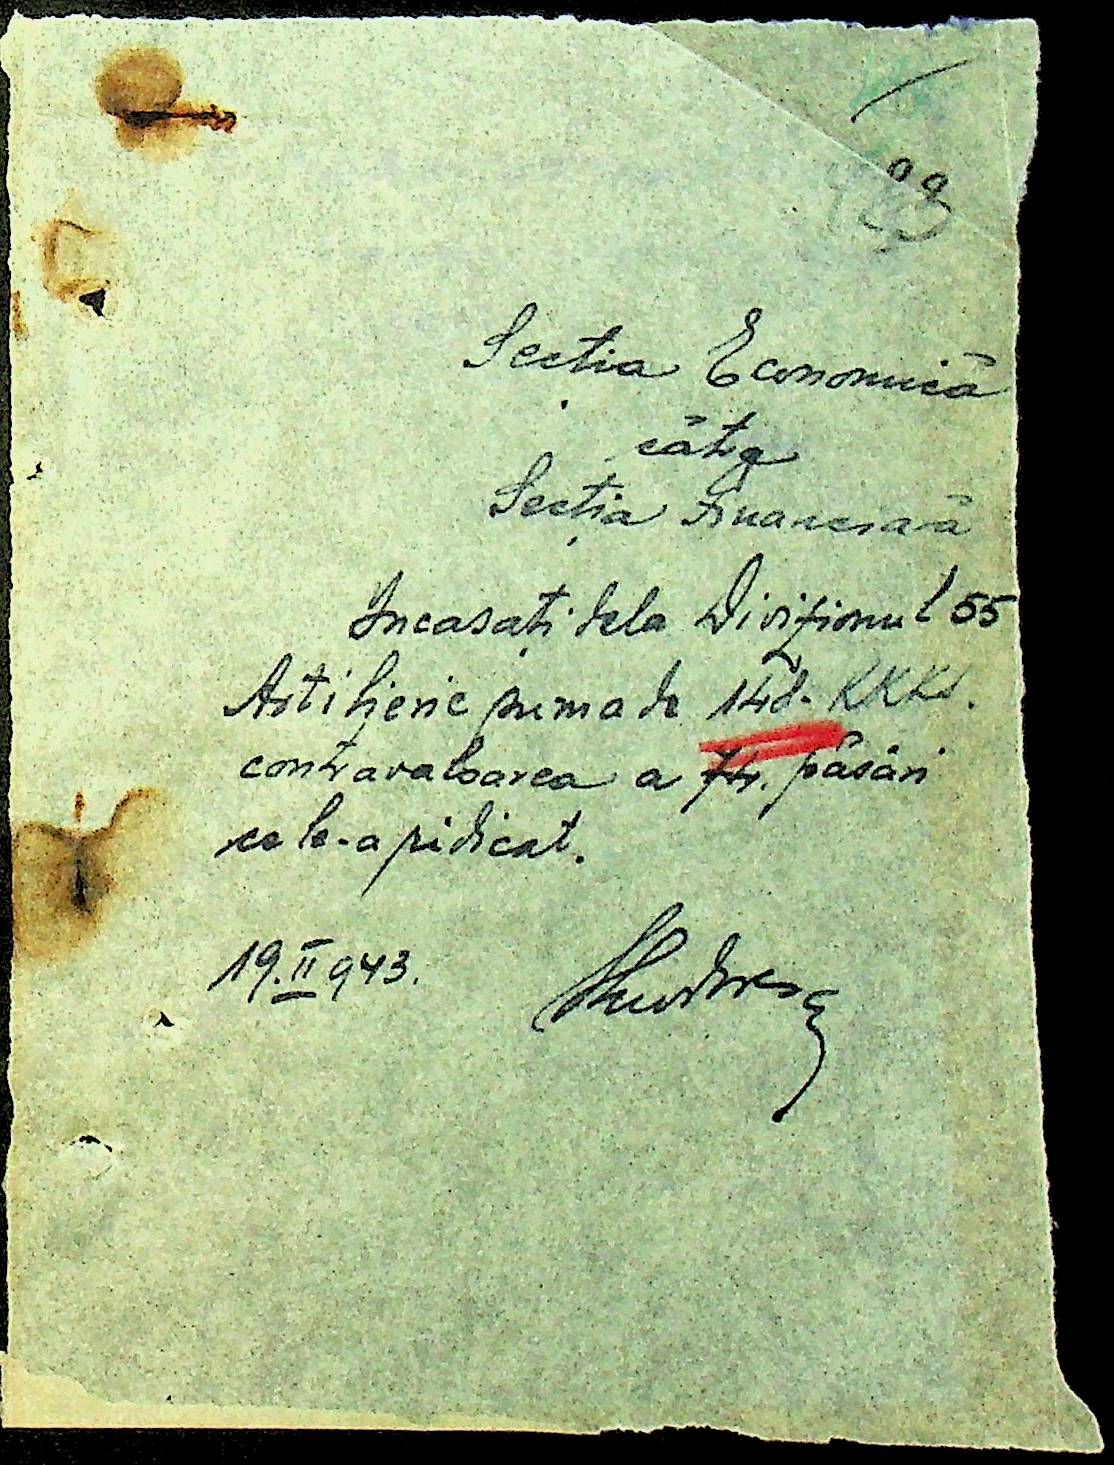 Secția Economică
către
Secția Financiară
Încasați dela Divizionul 55
Artilerie suma de 148.- RKKS.
contravaloarea a 74. păsări
ce le-a ridicat.
19.II 943.